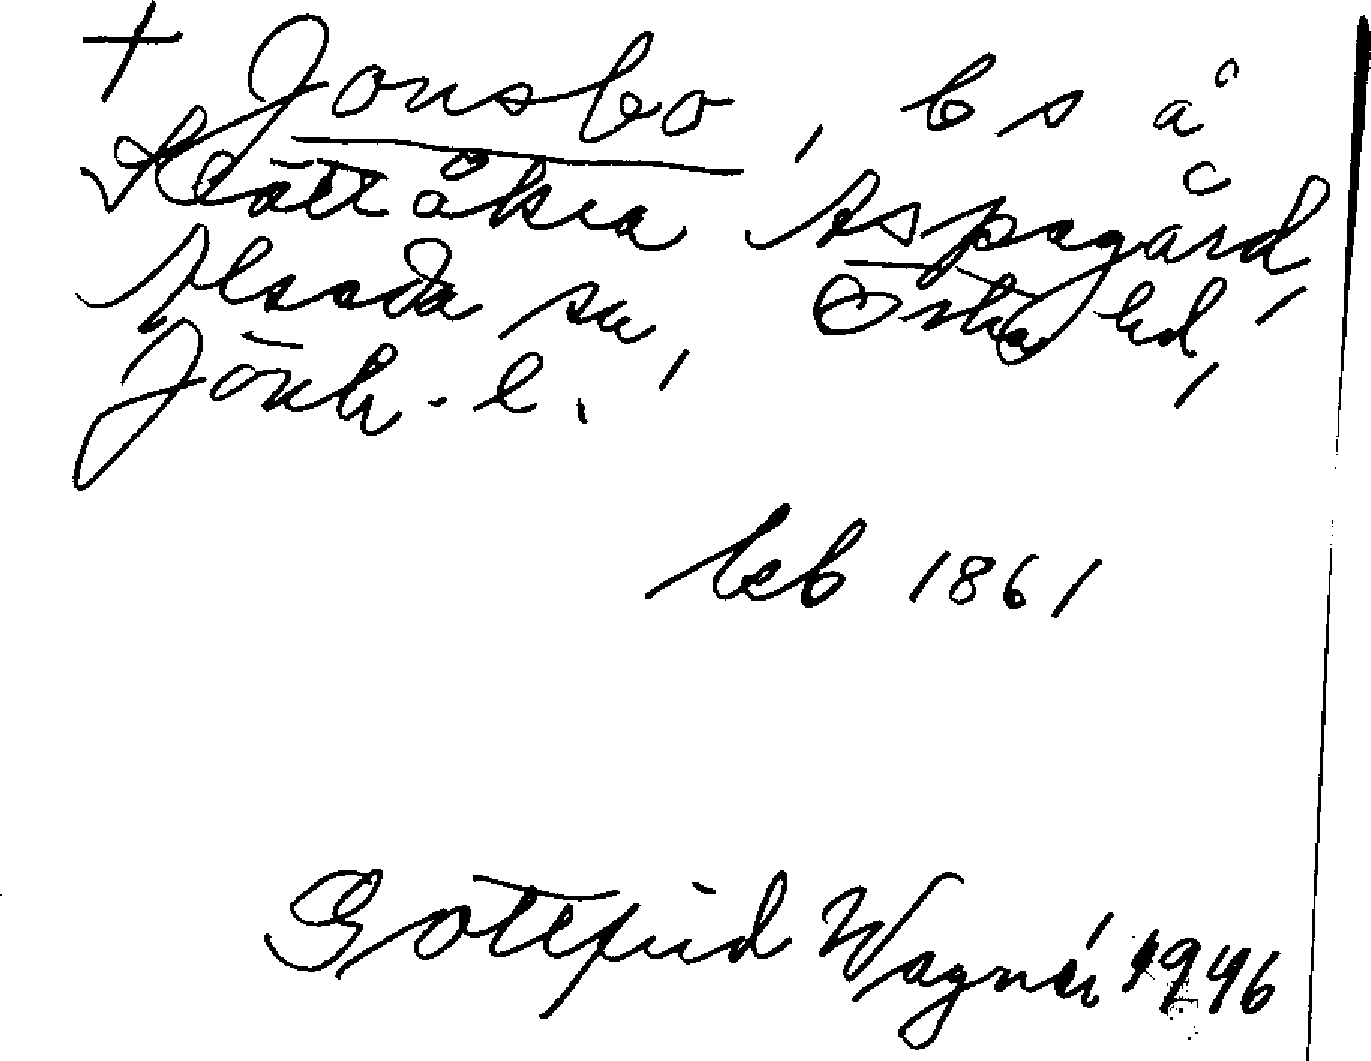 + Jonsbo, bs å
Slättåkra, Aspagård,
Alseda sn, Östra hd,
Jönk. l.
beb 1861
Gottfrid Wagnér 1946